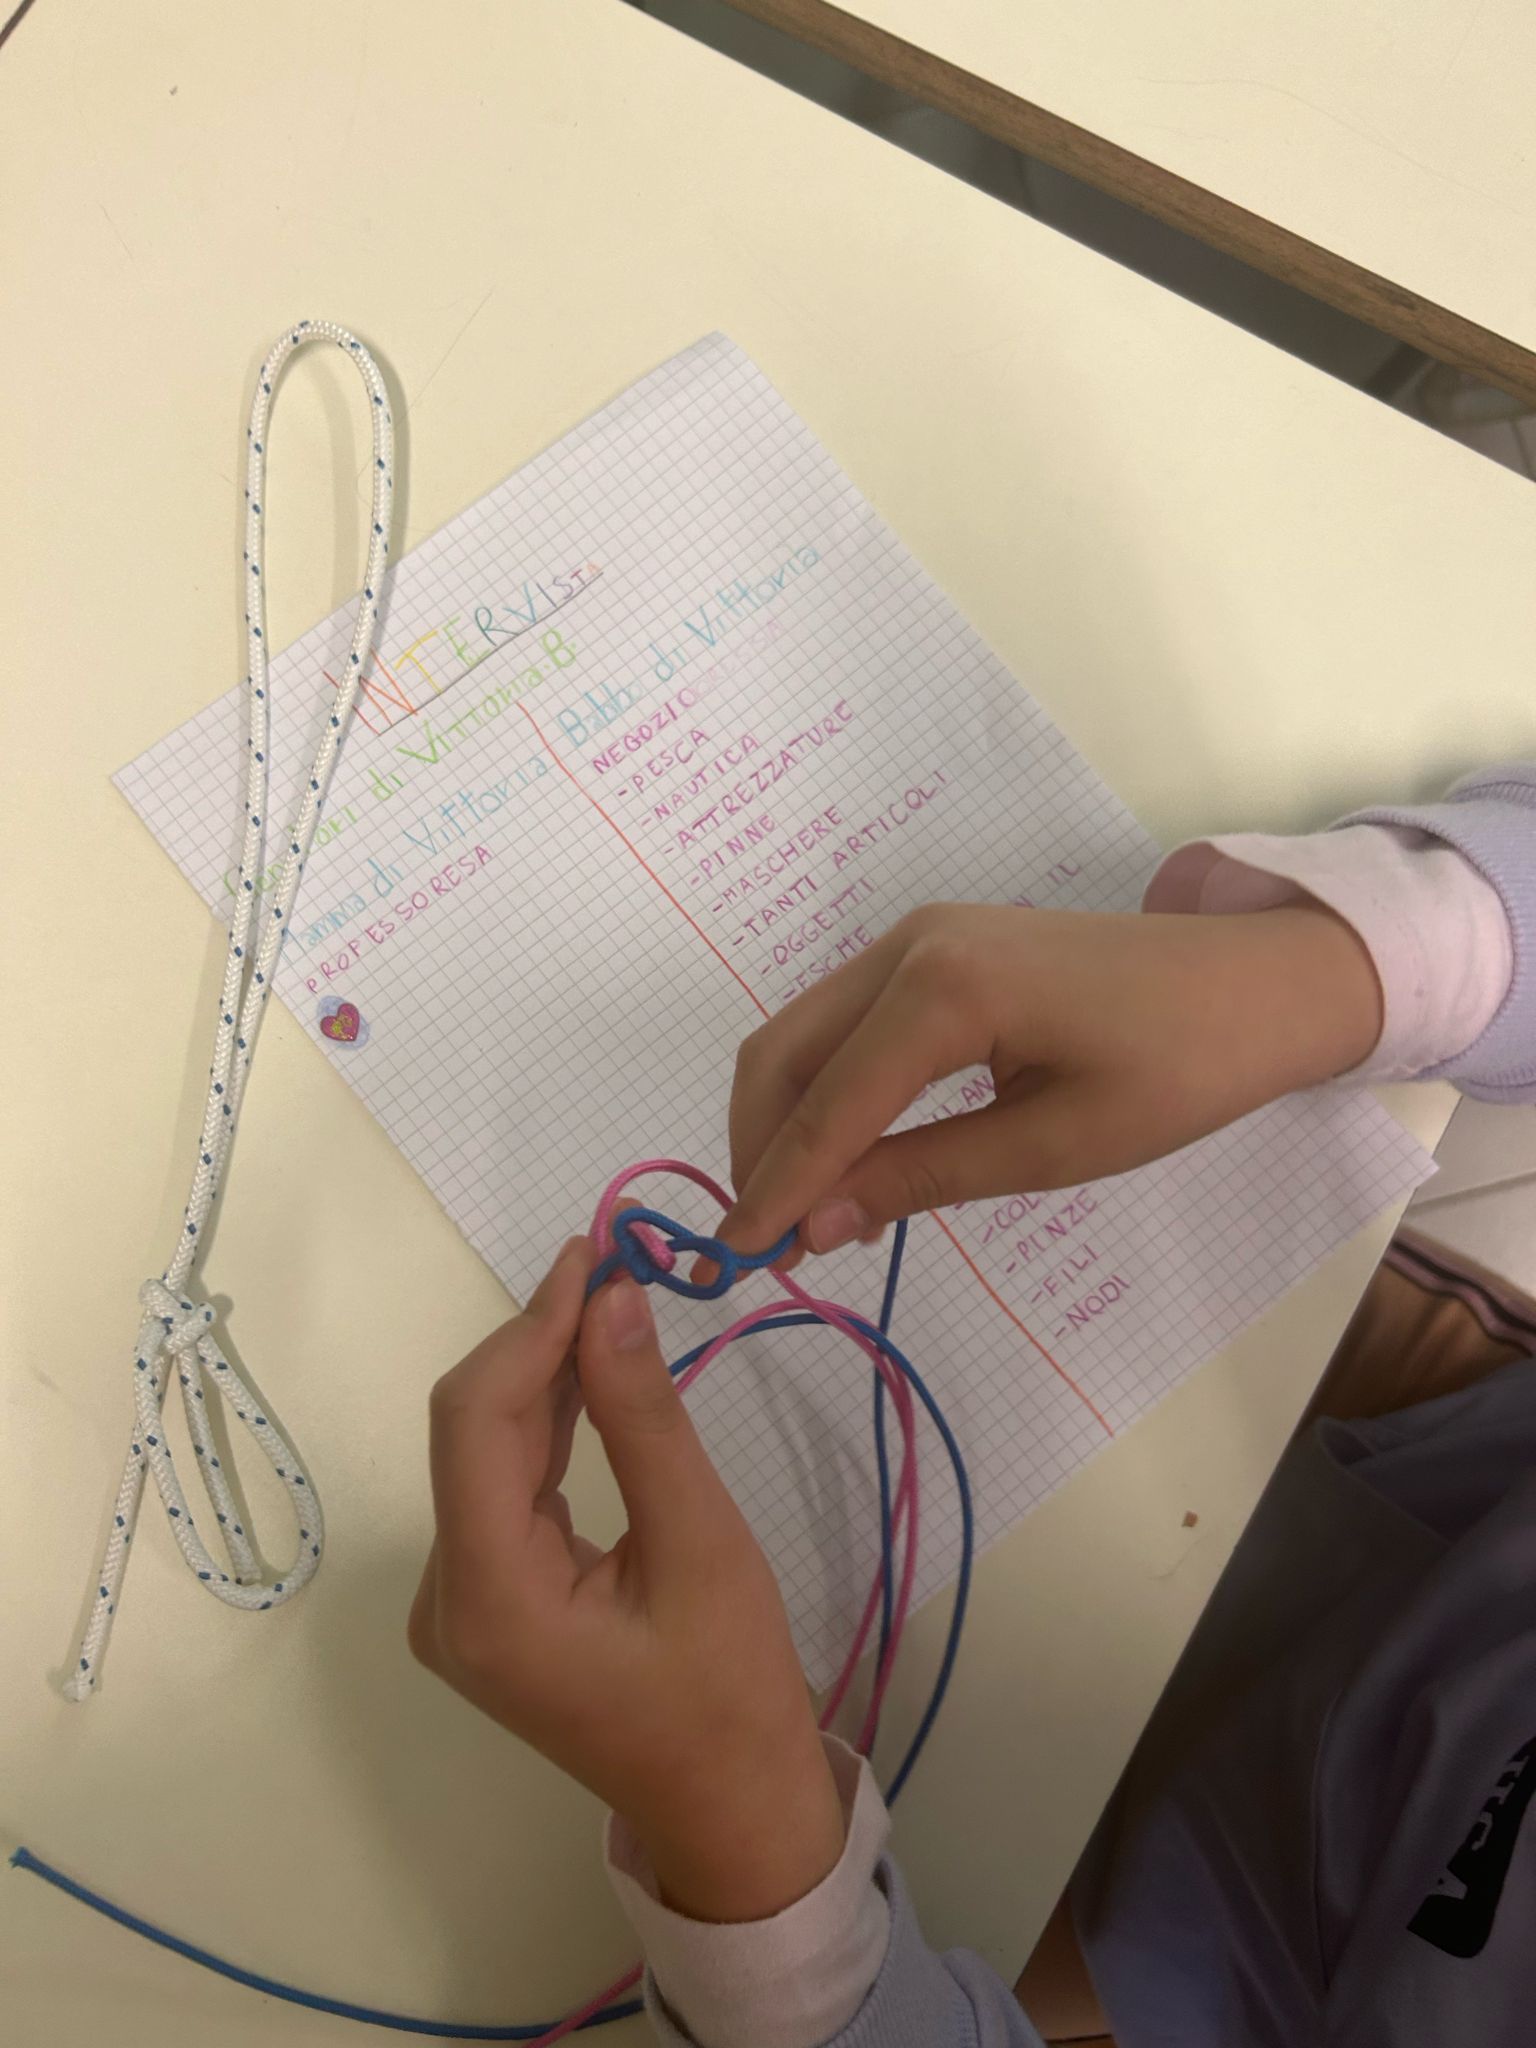 INTERVISTA
di Vittoria B.
Mamma di Vittoria
PROFESSORESA
Babbo di Vittoria
NEGOZIO
-PESCA
-NAUTICA
-ATTREZZATURE
-PINNE
-MASCHERE
-TANTI ARTICOLI
-OGGETTI
-ESCHE
IL
-PINZE
-FILI
-NODI